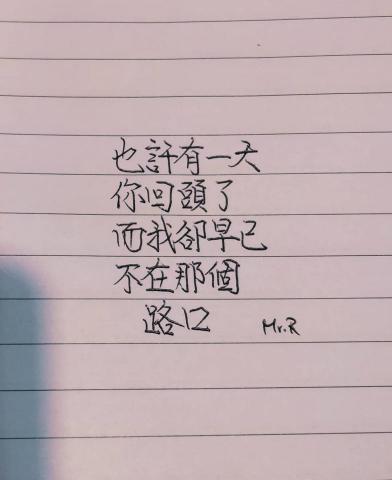 也許有一天
你回頭了
而我卻早已
不在那個
路口 Mr.R